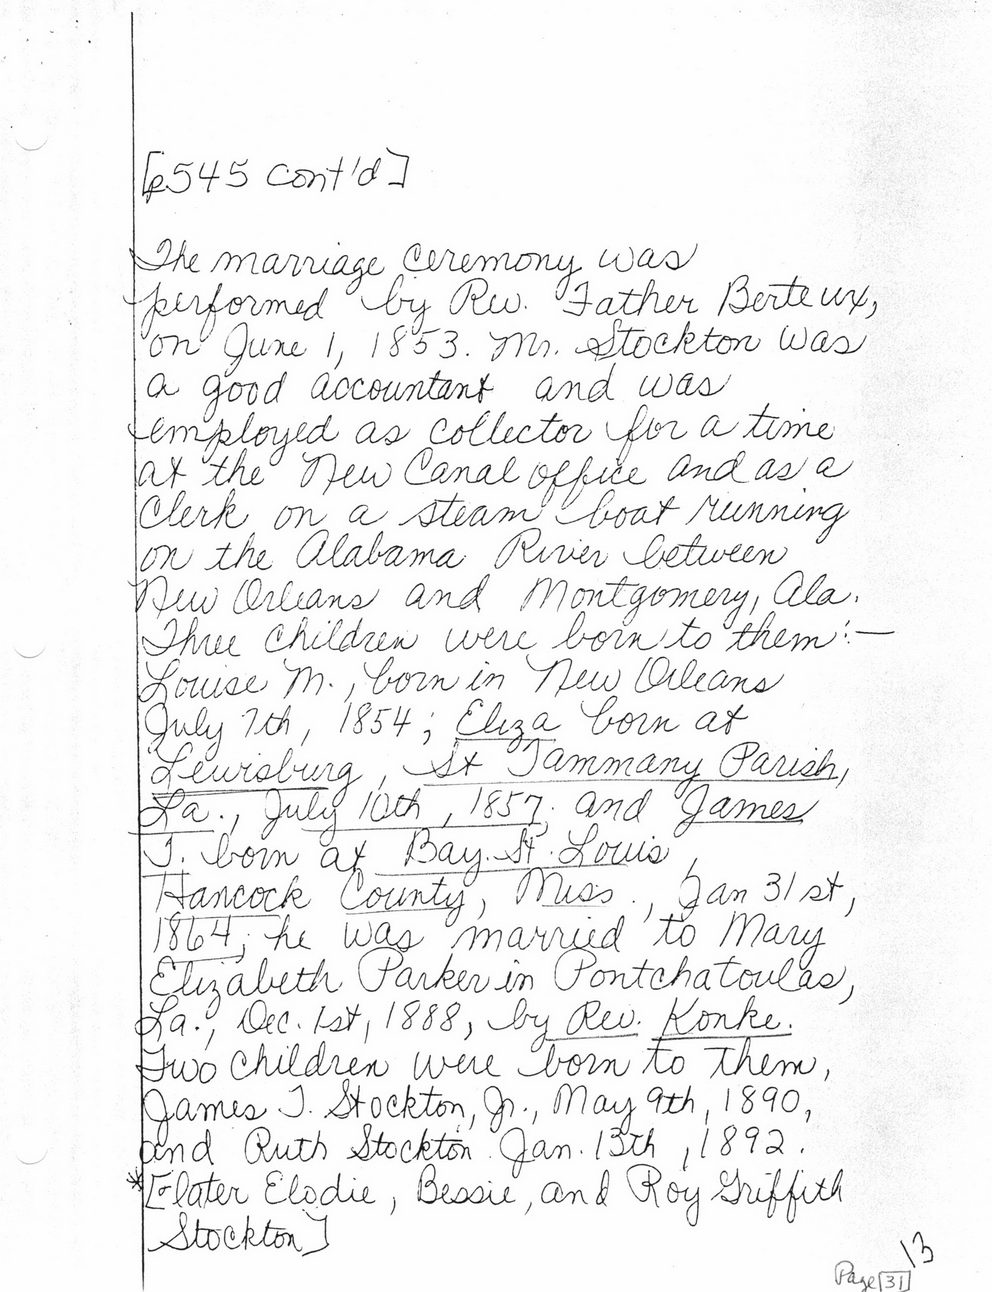 [p545 cont'd]
The marriage ceremony was
performed by Rev. Father Berteux,
on June 1, 1853. Mr. Stockton was
a good accountant and was
employed as collector for a time
at the New Canal office and as a
Clerk on a steam boat running
on the Alabama River between
New Orleans and Montgomery, Ala.
Three children were born to them:—
Louise M., born in New Orleans
July 7th, 1854; Eliza born at
Lewisburg, St Tammany Parish,
La., July 10th, 1857. and James
T. born at Bay St. Louis,
Hancock County, Miss., Jan 31st,
1864; he was married to Mary
Elizabeth Parker in Pontchatoulas,
La., Dec. 1st, 1888, by Rev. Konke.
Two children were born to them,
James T. Stockton, Jr., May 9th, 1890,
and Ruth Stockton Jan. 13th, 1892.
*[-later Elodie, Bessie, and Roy Griffith
Stockton]
13
Page 31